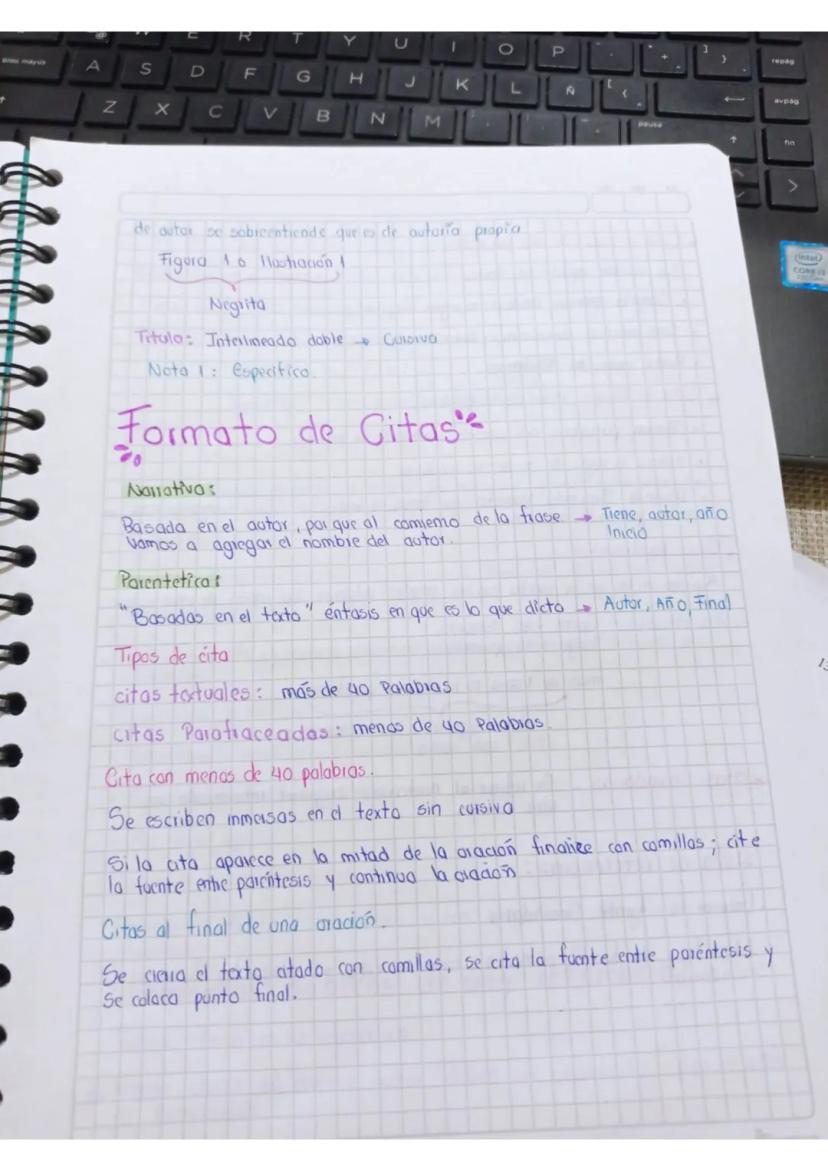 Q E R T Y U I O P
Bloq mayús A S D F G H J K L Ñ repág
Z X C V B N M pausa avpág
fin
intel
CORE i3
de autor se sobrentiende que es de autoría propia
Figura 1 o Ilustración 1
Negrita
Título: Interlineado doble → Cursiva
Nota 1: Específico.
Formato de Citas
Narrativa:
Basada en el autor, por que al comienzo de la frase → Tiene, autor, año
vamos a agregar el nombre del autor. Inicio
Parentetica:
"Basadas en el texto" énfasis en que es lo que dicto → Autor, Año, Final
Tipos de cita
citas textuales: más de 40 Palabras
citas Parafraceadas: menos de 40 Palabras
Cita con menos de 40 palabras.
Se escriben inmersas en el texto sin cursiva
Si la cita aparece en la mitad de la oración finalice con comillas; cite
la fuente entre paréntesis y continua la oración
Citas al final de una oración.
Se cierra el texto citado con comillas, se cita la fuente entre paréntesis y
Se coloca punto final.